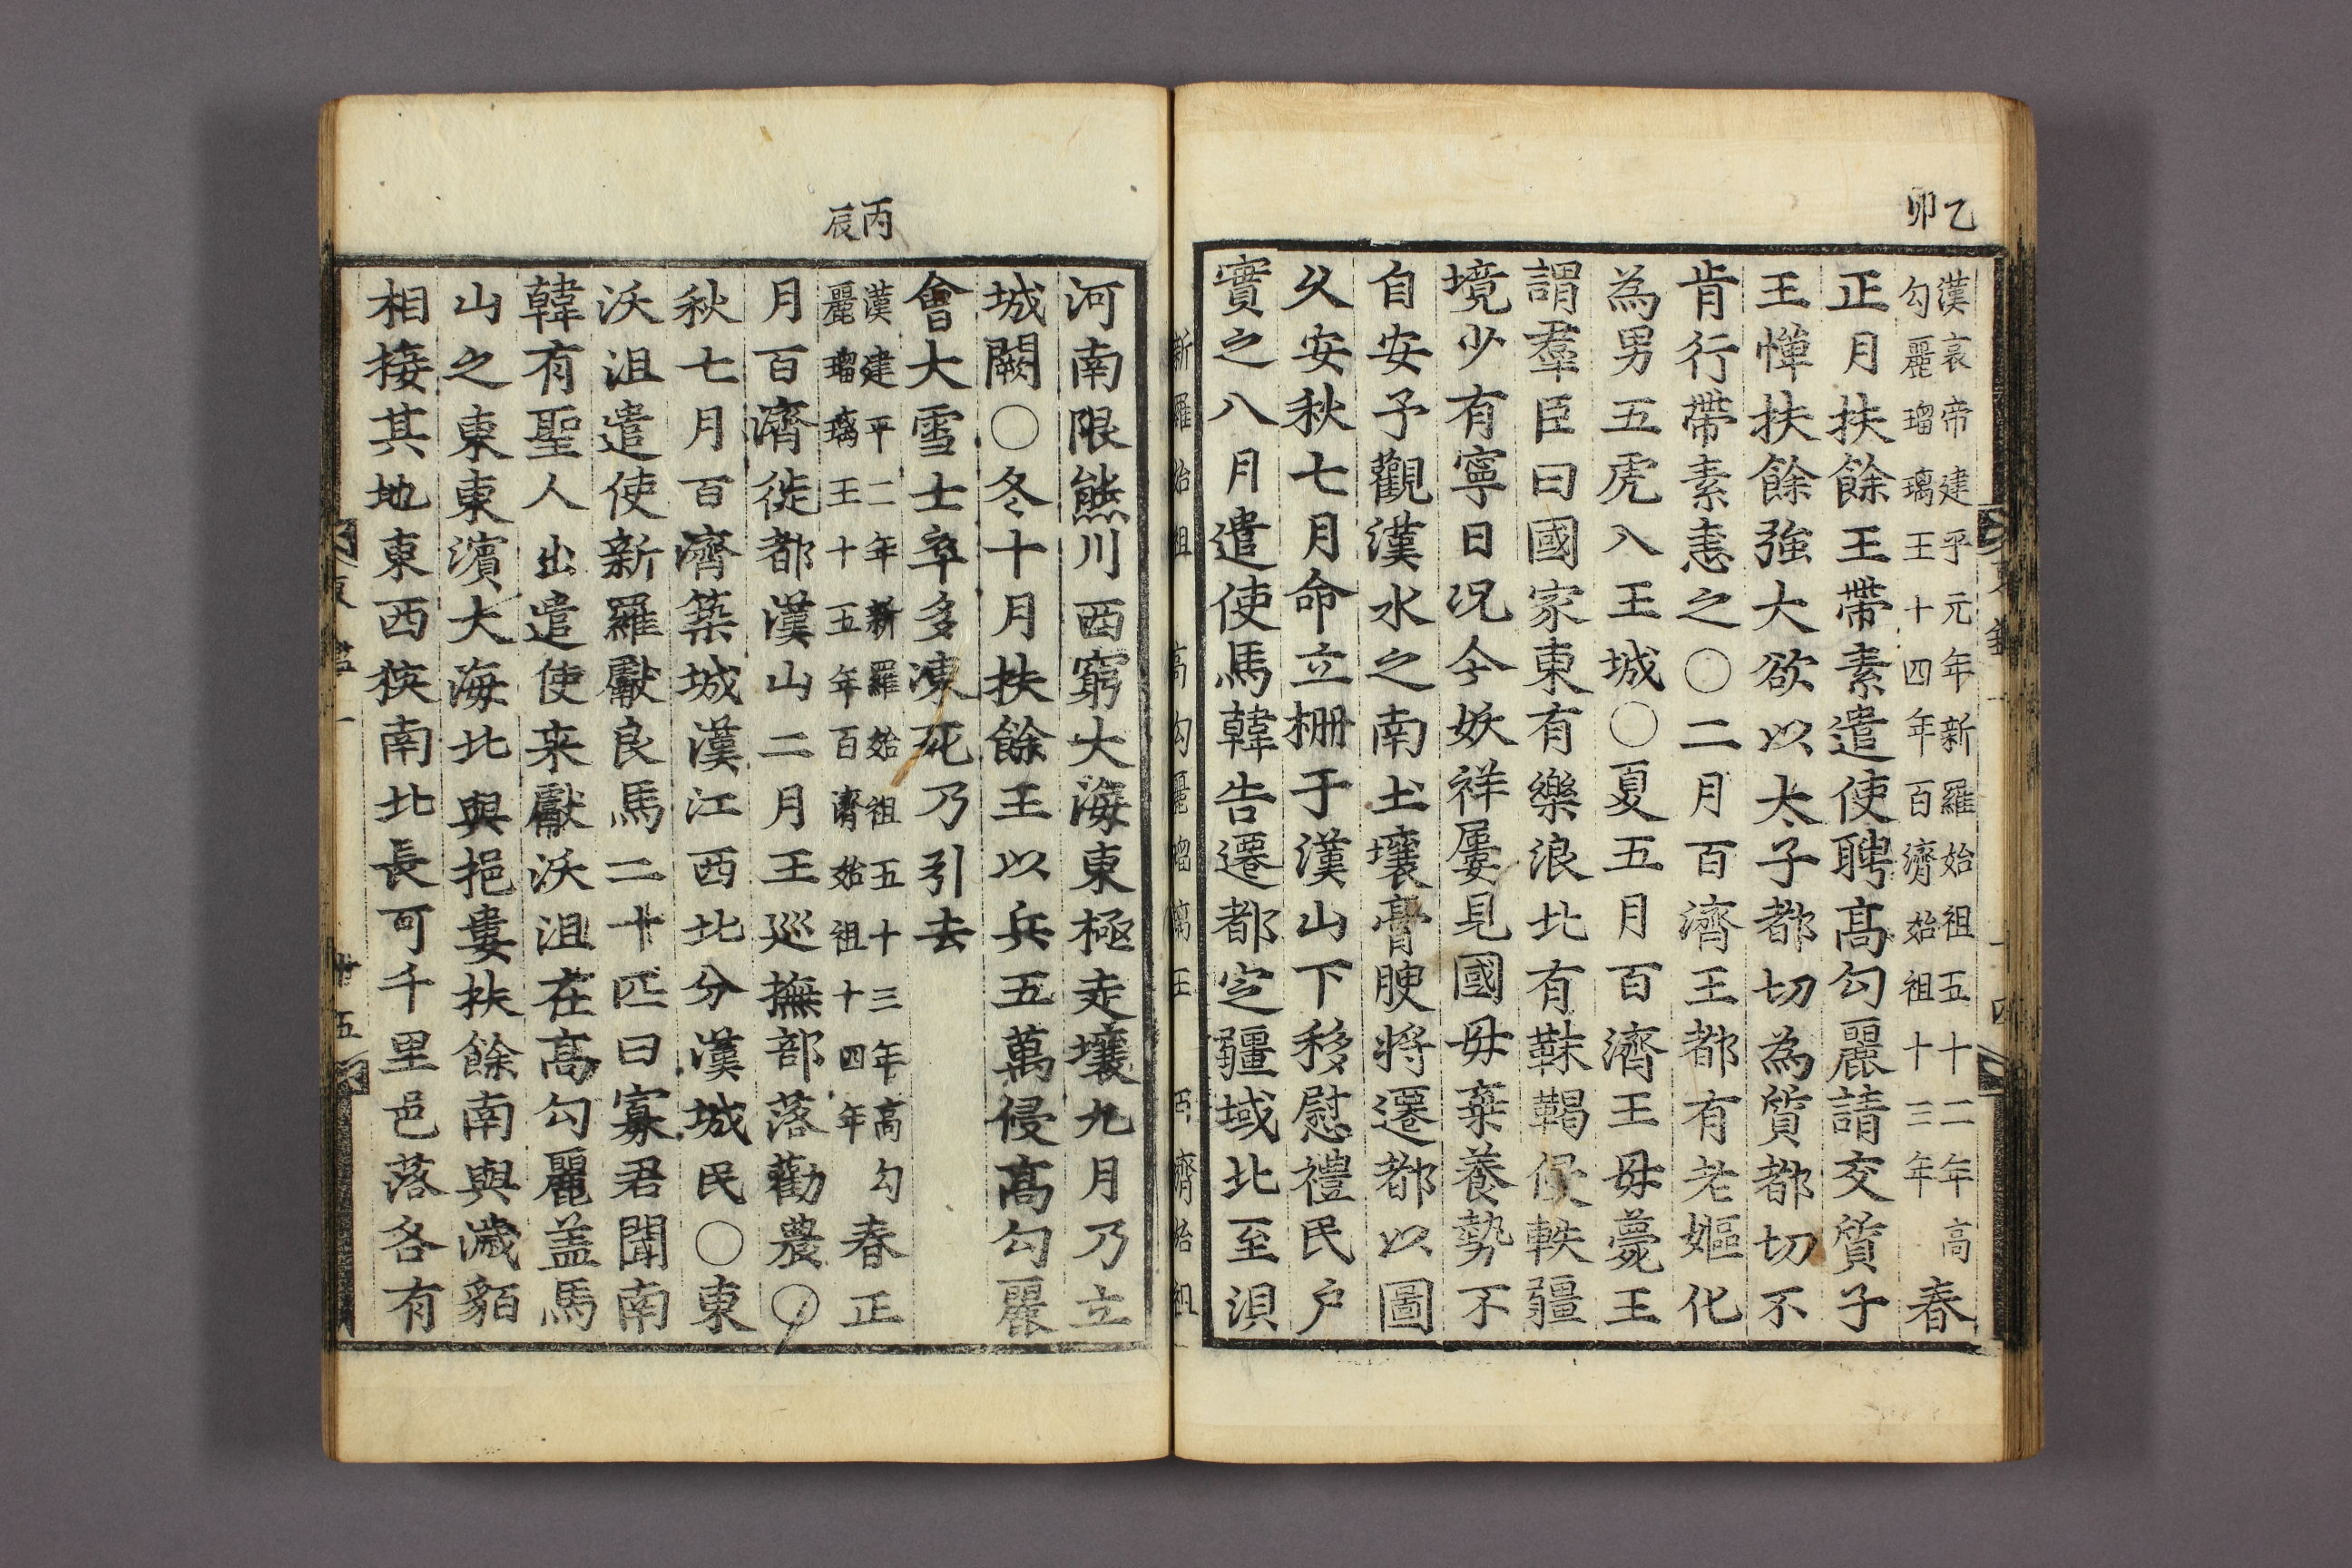 乙卯
漢哀帝建平元年新羅始祖五十二年高
勾麗瑠璃王十四年百濟始祖十三年
春
正月扶餘王帶素遣使聘高勾麗請交質子
王憚扶餘強大欲以太子都切為質都切不
肯行帶素恚之〇二月百濟王都有老嫗化
為男五虎入王城〇夏五月百濟王母薨王
謂羣臣曰國家東有樂浪北有靺鞨侵軼疆
境少有寧日况今妖祥屢見國母棄養勢不
自安予觀漢水之南土壤膏腴將遷都以圖
久安秋七月命立柵于漢山下移慰禮民戶
實之八月遣使馬韓告遷都定疆域北至浿
新羅始祖 高勾麗瑠璃王 百濟始祖
河南限熊川西窮大海東極走壤九月乃立
城闕〇冬十月扶餘王以兵五萬侵高勾麗
會大雪士卒多凍死乃引去
丙辰
漢建平二年新羅始祖五十三年高勾
麗瑠璃王十五年百濟始祖十四年
春正
月百濟徙都漢山二月王巡撫部落勸農〇
秋七月百濟築城漢江西北分漢城民〇東
沃沮遣使新羅獻良馬二十匹曰寡君聞南
韓有聖人出遣使来獻沃沮在高勾麗盖馬
山之東東濱大海北與挹婁扶餘南與濊貊
相接其地東西狹南北長可千里邑落各有
東鑑一
廿五